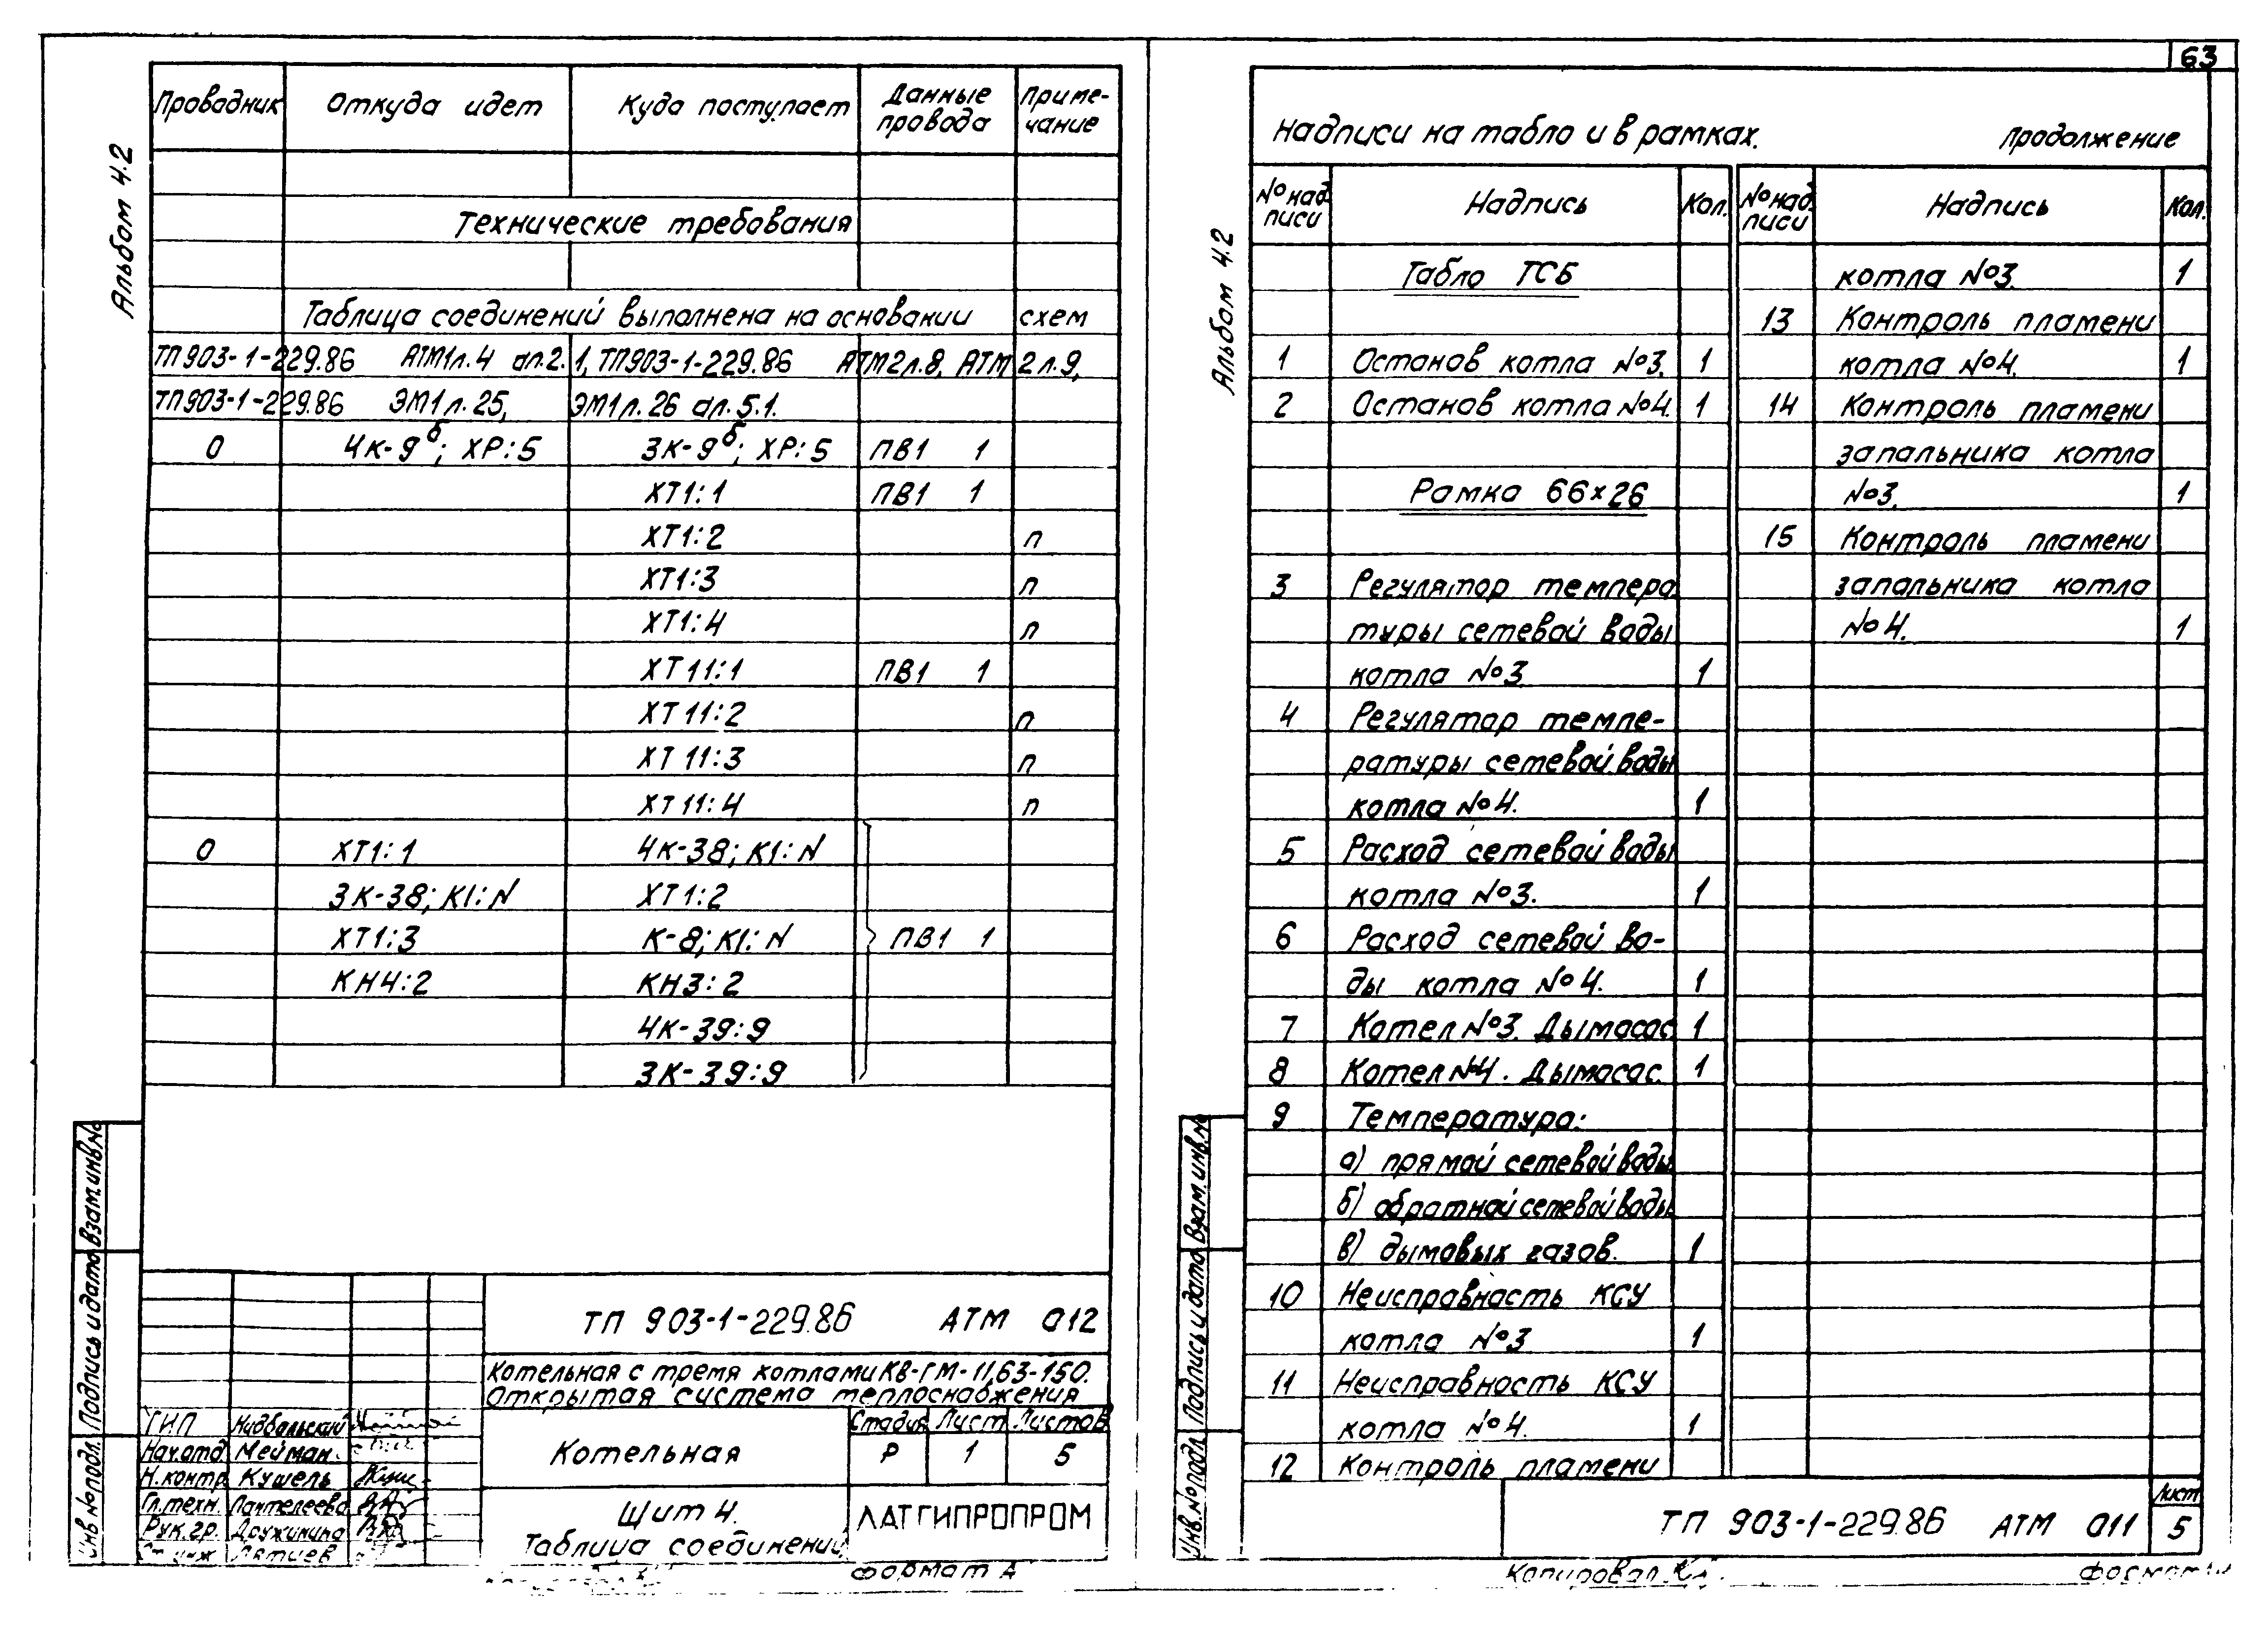 63
Альбом 4.2
Проводник Откуда идет Куда поступает Данные провода Приме-чание
Технические требования
Таблица соединений выполнена на основании схем
ТП903-1-229.86 АТМ1л.4 ал.2.1, ТП903-1-229.86 АТМ2л.8, АТМ2л.9,
ТП903-1-229.86 ЭМ1л.25, ЭМ1л.26 ал.5.1.
0 4К-9б; ХР:5 3К-9б; ХР:5 ПВ1 1
ХТ1:1 ПВ1 1
ХТ1:2 п
ХТ1:3 п
ХТ1:4 п
ХТ11:1 ПВ1 1
ХТ11:2 п
ХТ11:3 п
ХТ11:4 п
0 ХТ1:1 4К-38; К1:N
3К-38; К1:N ХТ1:2
ХТ1:3 К-8; К1:N ПВ1 1
КН4:2 КН3:2
4К-39:9
3К-39:9
Взам.инв.№
Подпись и дата
Инв.№подл.
ТП 903-1-229.86 АТМ 012
Котельная с тремя котлами КВ-ГМ-11,63-150.
Открытая система теплоснабжения
ГИП
Нач.отд. Мейман
Н.контр. Кушель
Гл.техн. Пантелеева
Рук.гр. Дружинина
Ст.инж.
Котельная
Стадия Лист Листов
Р 1 5
Щит 4.
Таблица соединений
ЛАТГИПРОПРОМ
Формат А
Альбом 4.2
Надписи на табло и в рамках. Продолжение
№ над-писи Надпись Кол. № над-писи Надпись Кол.
Табло ТСБ
1 Останов котла №3. 1
2 Останов котла №4. 1
Рамка 66×26
3 Регулятор темпера
туры сетевой воды
котла №3 1
4 Регулятор темпе-
ратуры сетевой воды
котла №4. 1
5 Расход сетевой воды
котла №3. 1
6 Расход сетевой во-
ды котла №4. 1
7 Котел №3. Дымосос. 1
8 Котел №4. Дымосос. 1
9 Температура:
а) прямой сетевой воды
б) обратной сетевой воды
в) дымовых газов. 1
10 Неисправность КСУ
котла №3 1
11 Неисправность КСУ
котла №4. 1
12 Контроль пламени
котла №3. 1
13 Контроль пламени
котла №4. 1
14 Контроль пламени
запальника котла
№3. 1
15 Контроль пламени
запальника котла
№4. 1
Взам.инв.№
Подпись и дата
Инв.№подл.
ТП 903-1-229.86 АТМ 011
Лист
5
Копировал
Формат